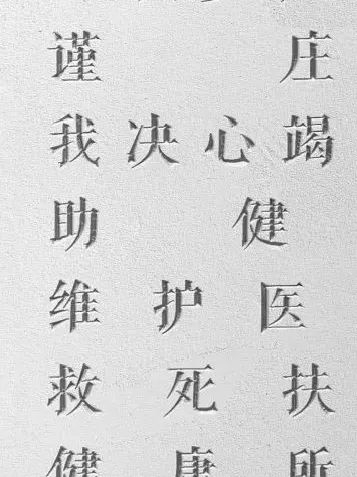 谨 庄
我 决 心 竭
助 健
维 护 医
救 死 扶
健 康 所